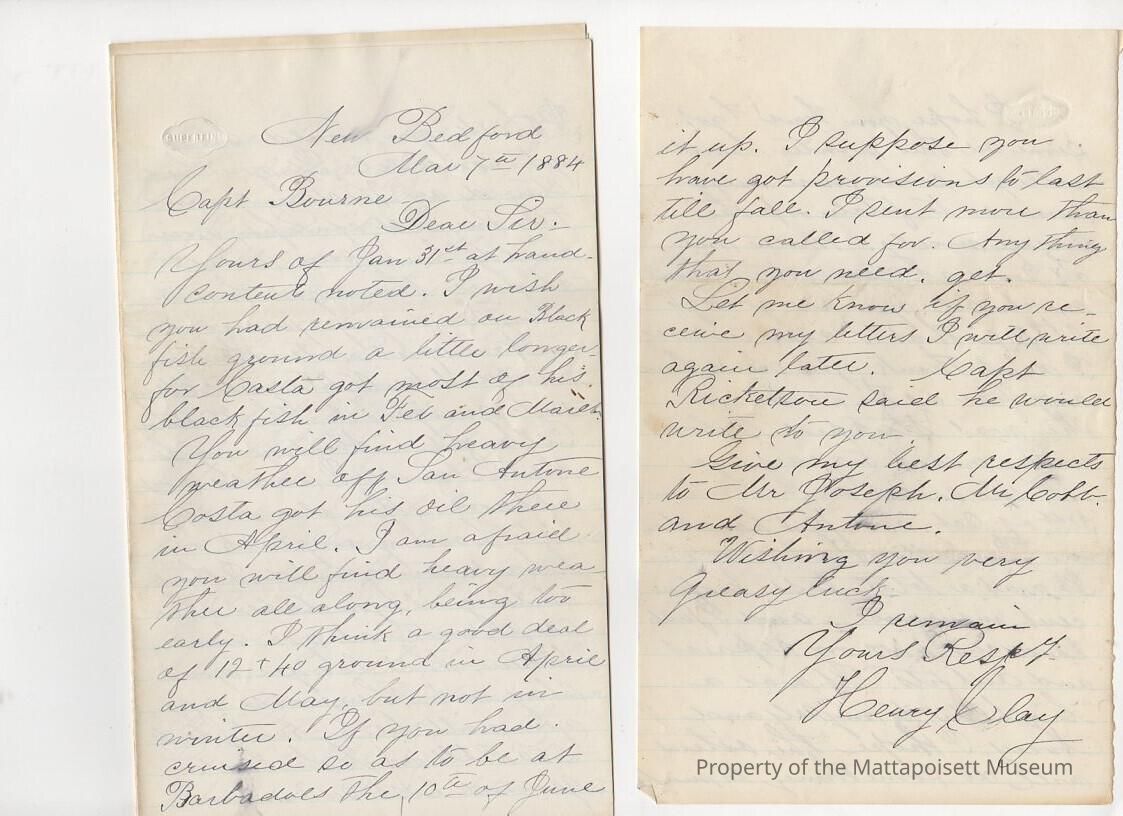 New Bedford
Mar 7th 1884
Capt Bourne
Dear Sir.
Yours of Jan 31st at hand.
content noted. I wish
you had remained on Black
fish ground a little longer.
for Costa got most of his
black fish in Feb and March
You will find heavy
weather off San Antone
Costa got his oil there
in April. I am afraid
you will find heavy wea
ther all along, being too
early. I think a good deal
of 12 + 40 ground in April
and May, but not in
winter. If you had
cruised so as to be at
Barbadoes the 10th of June
it up. I suppose you
have got provisions to last
till fall. I sent more than
you called for. Any thing
that you need, get.
Let me know, if you re-
ceive my letters I will write
again later. Capt
Ricketson said he would
write to you.
Give my best respects
to Mr Joseph. Mr Cobb.
and Antone.
Wishing you very
greasy luck
I remain
Yours Respt
Henry Clay
Property of the Mattapoisett Museum